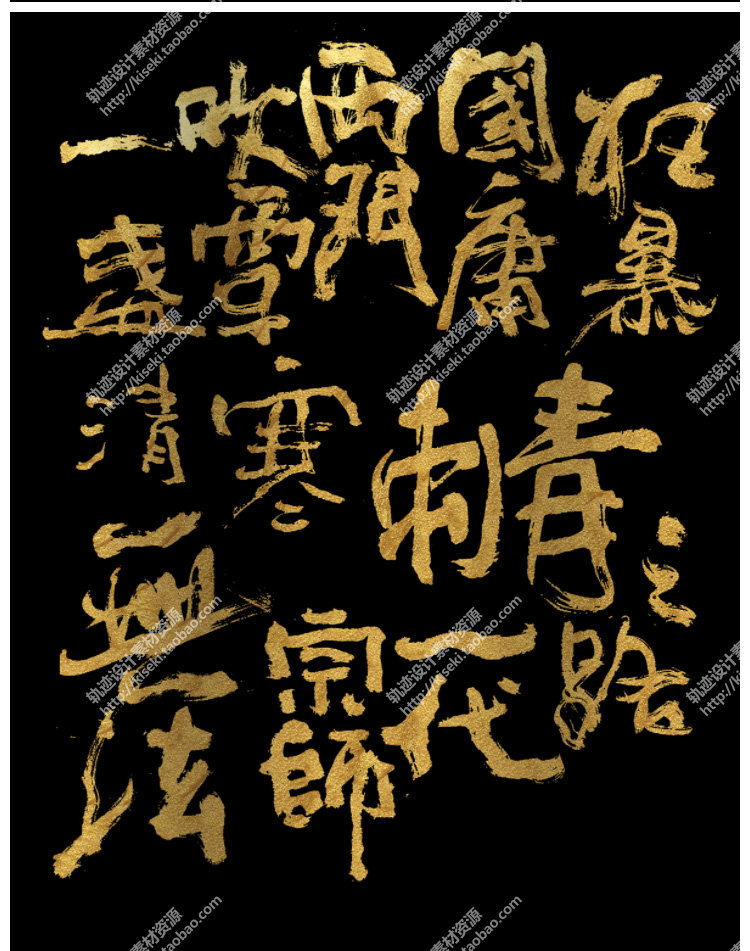 狂暴
國庸
西門
吹雪
一盞清
寒
青刺
之路
一代
宗師
無法
轨迹设计素材资源
http://kiseki.taobao.com
轨迹设计素材资源
http://kiseki.taobao.com
轨迹设计素材资源
http://kiseki.taobao.com
轨迹设计素材资源
http://kiseki.taobao.com
轨迹设计素材资源
http://kiseki.taobao.com
轨迹设计素材资源
http://kiseki.taobao.com